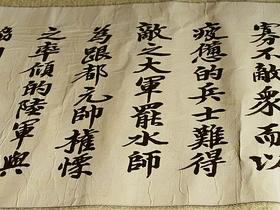 寡不敵衆而以
疲憊的兵士難得
敵之大軍罷水師
爲跟都元帥權慄
之率領的陸軍與